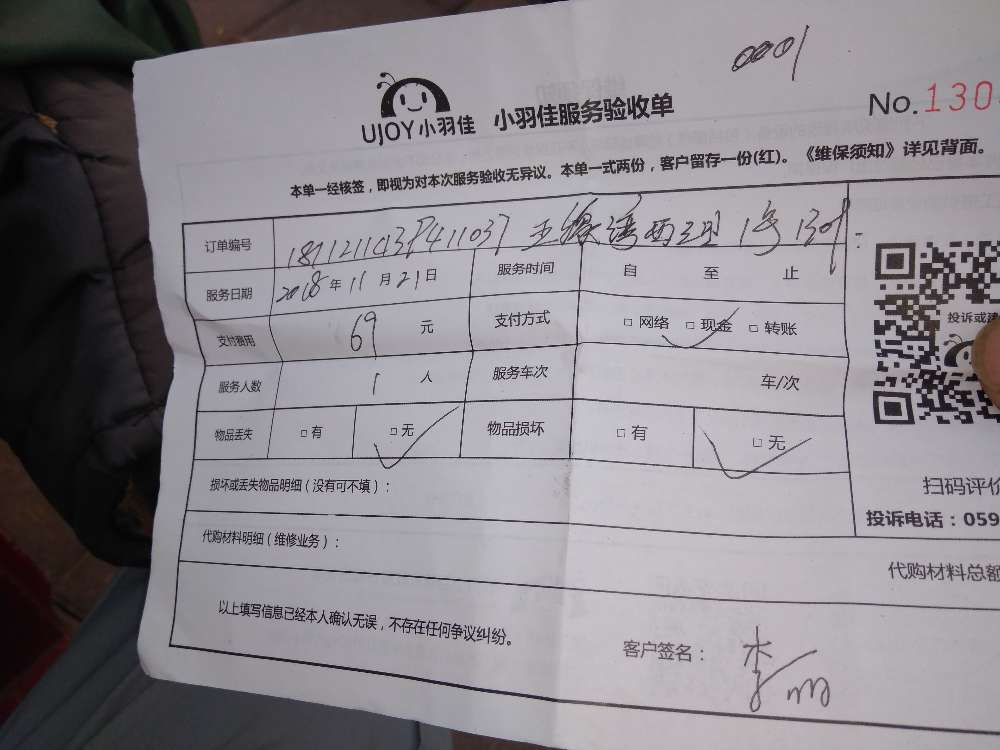 0001
UJOY小羽佳 小羽佳服务验收单 No.130
本单一经核签，即视为对本次服务验收无异议。本单一式两份，客户留存一份(红)。《维保须知》详见背面。
订单编号 西 1号
服务日期 2018年11月21日 服务时间 自 至 止
支付费用 69 元 支付方式 □ 网络 □ 现金 □ 转账
服务人数 1 人 服务车次 车/次
物品丢失 □ 有 □ 无 物品损坏 □ 有 □ 无
投诉或建
扫码评价
投诉电话：059
损坏或丢失物品明细（没有可不填）：
代购材料明细（维修业务）：
代购材料总额
以上填写信息已经本人确认无误，不存在任何争议纠纷。
客户签名： 李丽